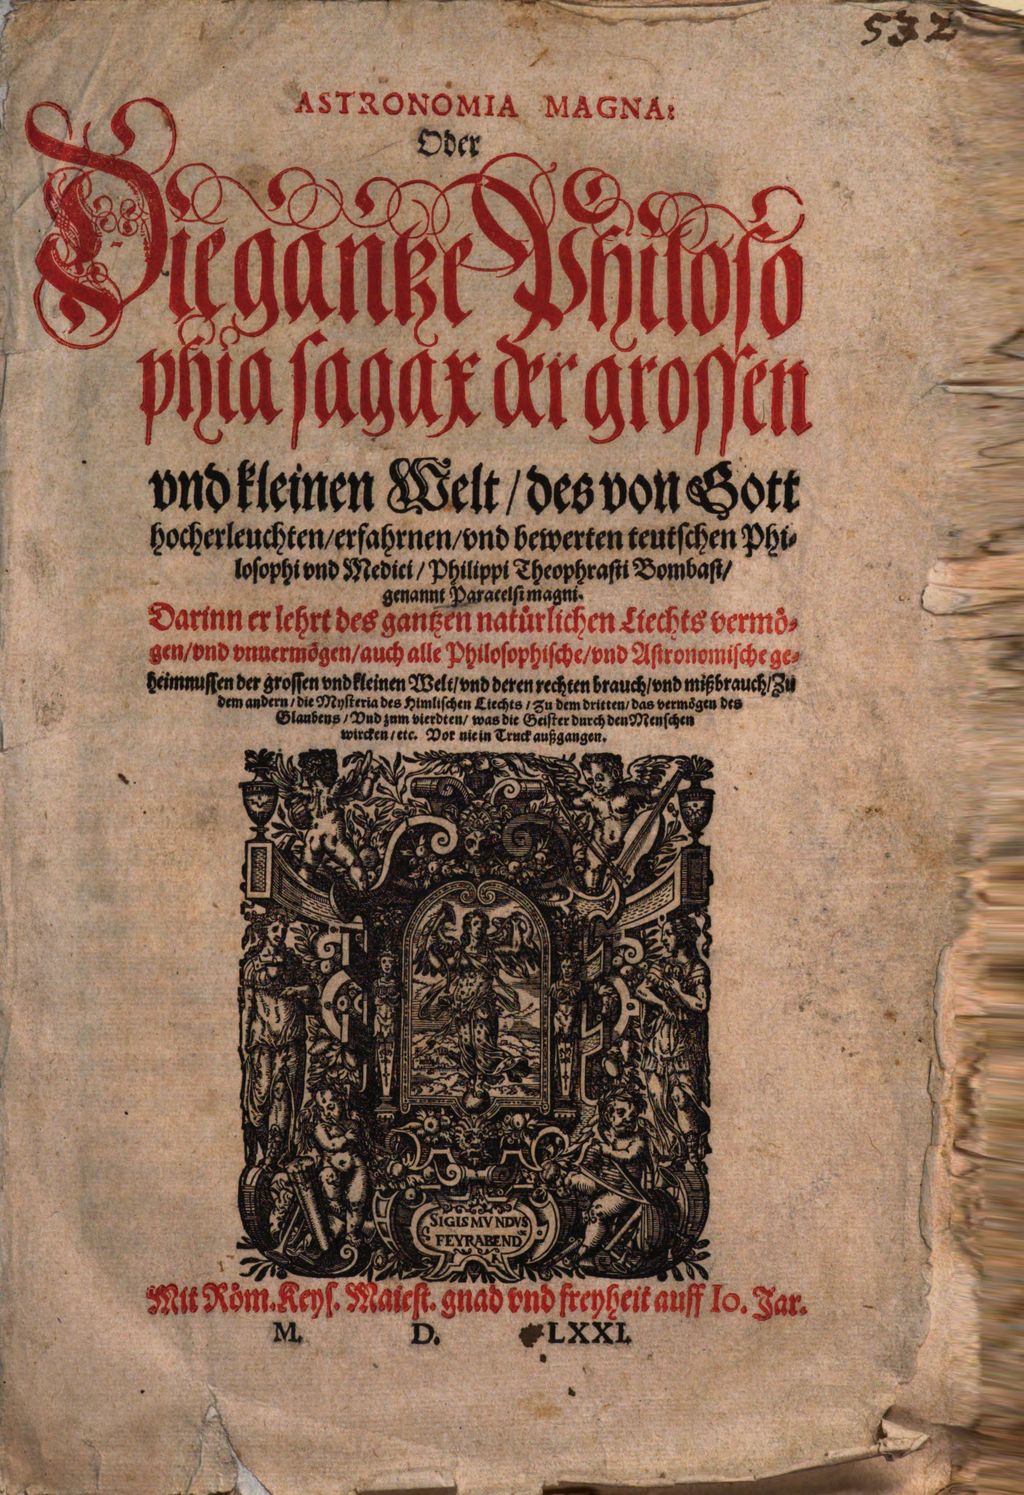 532
ASTRONOMIA MAGNA:
Oder
Die gantze Philoso
phia sagax der grossen
vnd kleinen Welt / des von Gott
hocherleuchten/erfahrnen/vnd bewerten teutschen Phi-
losophi vnd Medici / Philippi Theophrasti Bombast/
genannt Paracelsi magni.
Darinn er lehrt des gantzen natürlichen Liechts vermö-
gen/vnd vnuermögen/auch alle Philosophische/vnd Astronomische ge-
heimnussen der grossen vnd kleinen Welt/vnd deren rechten brauch/vnd mißbrauch/Zu
dem andern / die Mysteria des Himlischen Liechts / Zu dem dritten/ das vermögen des
Glaubens / Vnd zum vierdten/ was die Geister durch den Menschen
wircken / etc. Vor nie in Truck außgangen.
SIGISMVNDVS
FEYRABEND
Mit Röm. Keys. Maiest. gnad vnd freyheit auff 10. Jar.
M. D. LXXI.